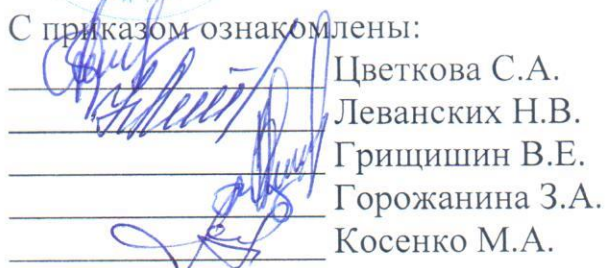 С приказом ознакомлены:
Цветкова С.А.
Леванских Н.В.
Грищишин В.Е.
Горожанина З.А.
Косенко М.А.